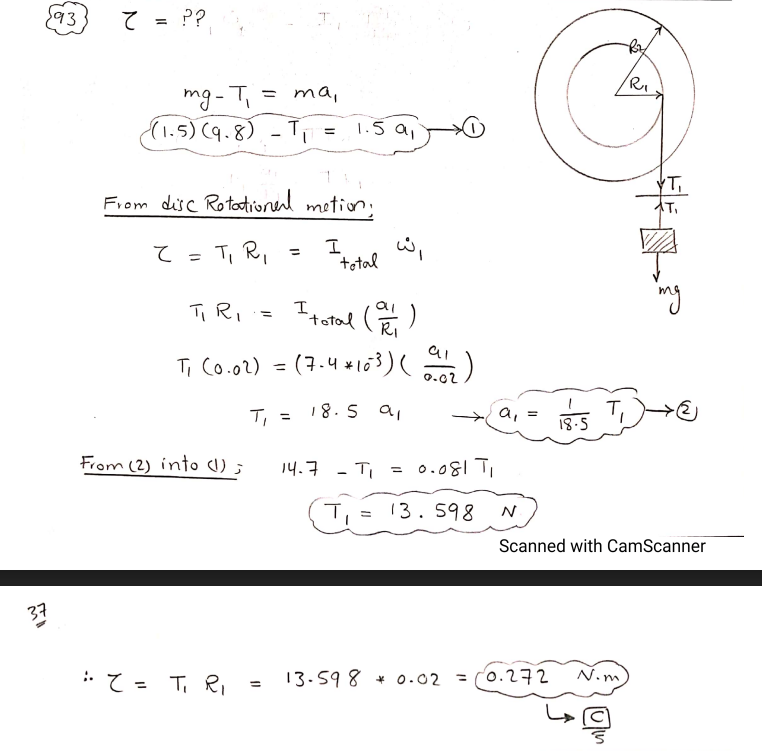 93 τ = ??
mg - T₁ = ma₁
(1.5)(9.8) - T₁ = 1.5 a₁ → ①
From disc Rotational motion;
τ = T₁ R₁ = I_total ω̇₁
T₁ R₁ = I_total (a₁/R₁)
T₁ (0.02) = (7.4 * 10⁻³) (a₁/0.02)
T₁ = 18.5 a₁ → a₁ = 1/18.5 T₁ → ②
From (2) into (1); 14.7 - T₁ = 0.081 T₁
T₁ = 13.598 N
R₂
R₁
T₁
T₁
mg
Scanned with CamScanner
37
∴ τ = T₁ R₁ = 13.598 * 0.02 = 0.272 N.m
↳ C